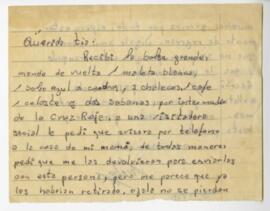 Querido tio:
Recibí la bolsa grande,
mande de vuelta 1 maleta blanca,
1 bolso azul a cuadros, 2 chalecos, 1 cafe
1 celeste y dos sabanas por intermedio
de la Cruz Roja, a una visitadora
social le pedi que avisara por telefono
a la casa de mi mamá, de todas maneras
pedi que me las devolvieran para enviarlas
con esta persona, pero me parece que ya
las habrian retirado, ojala no se pierdan